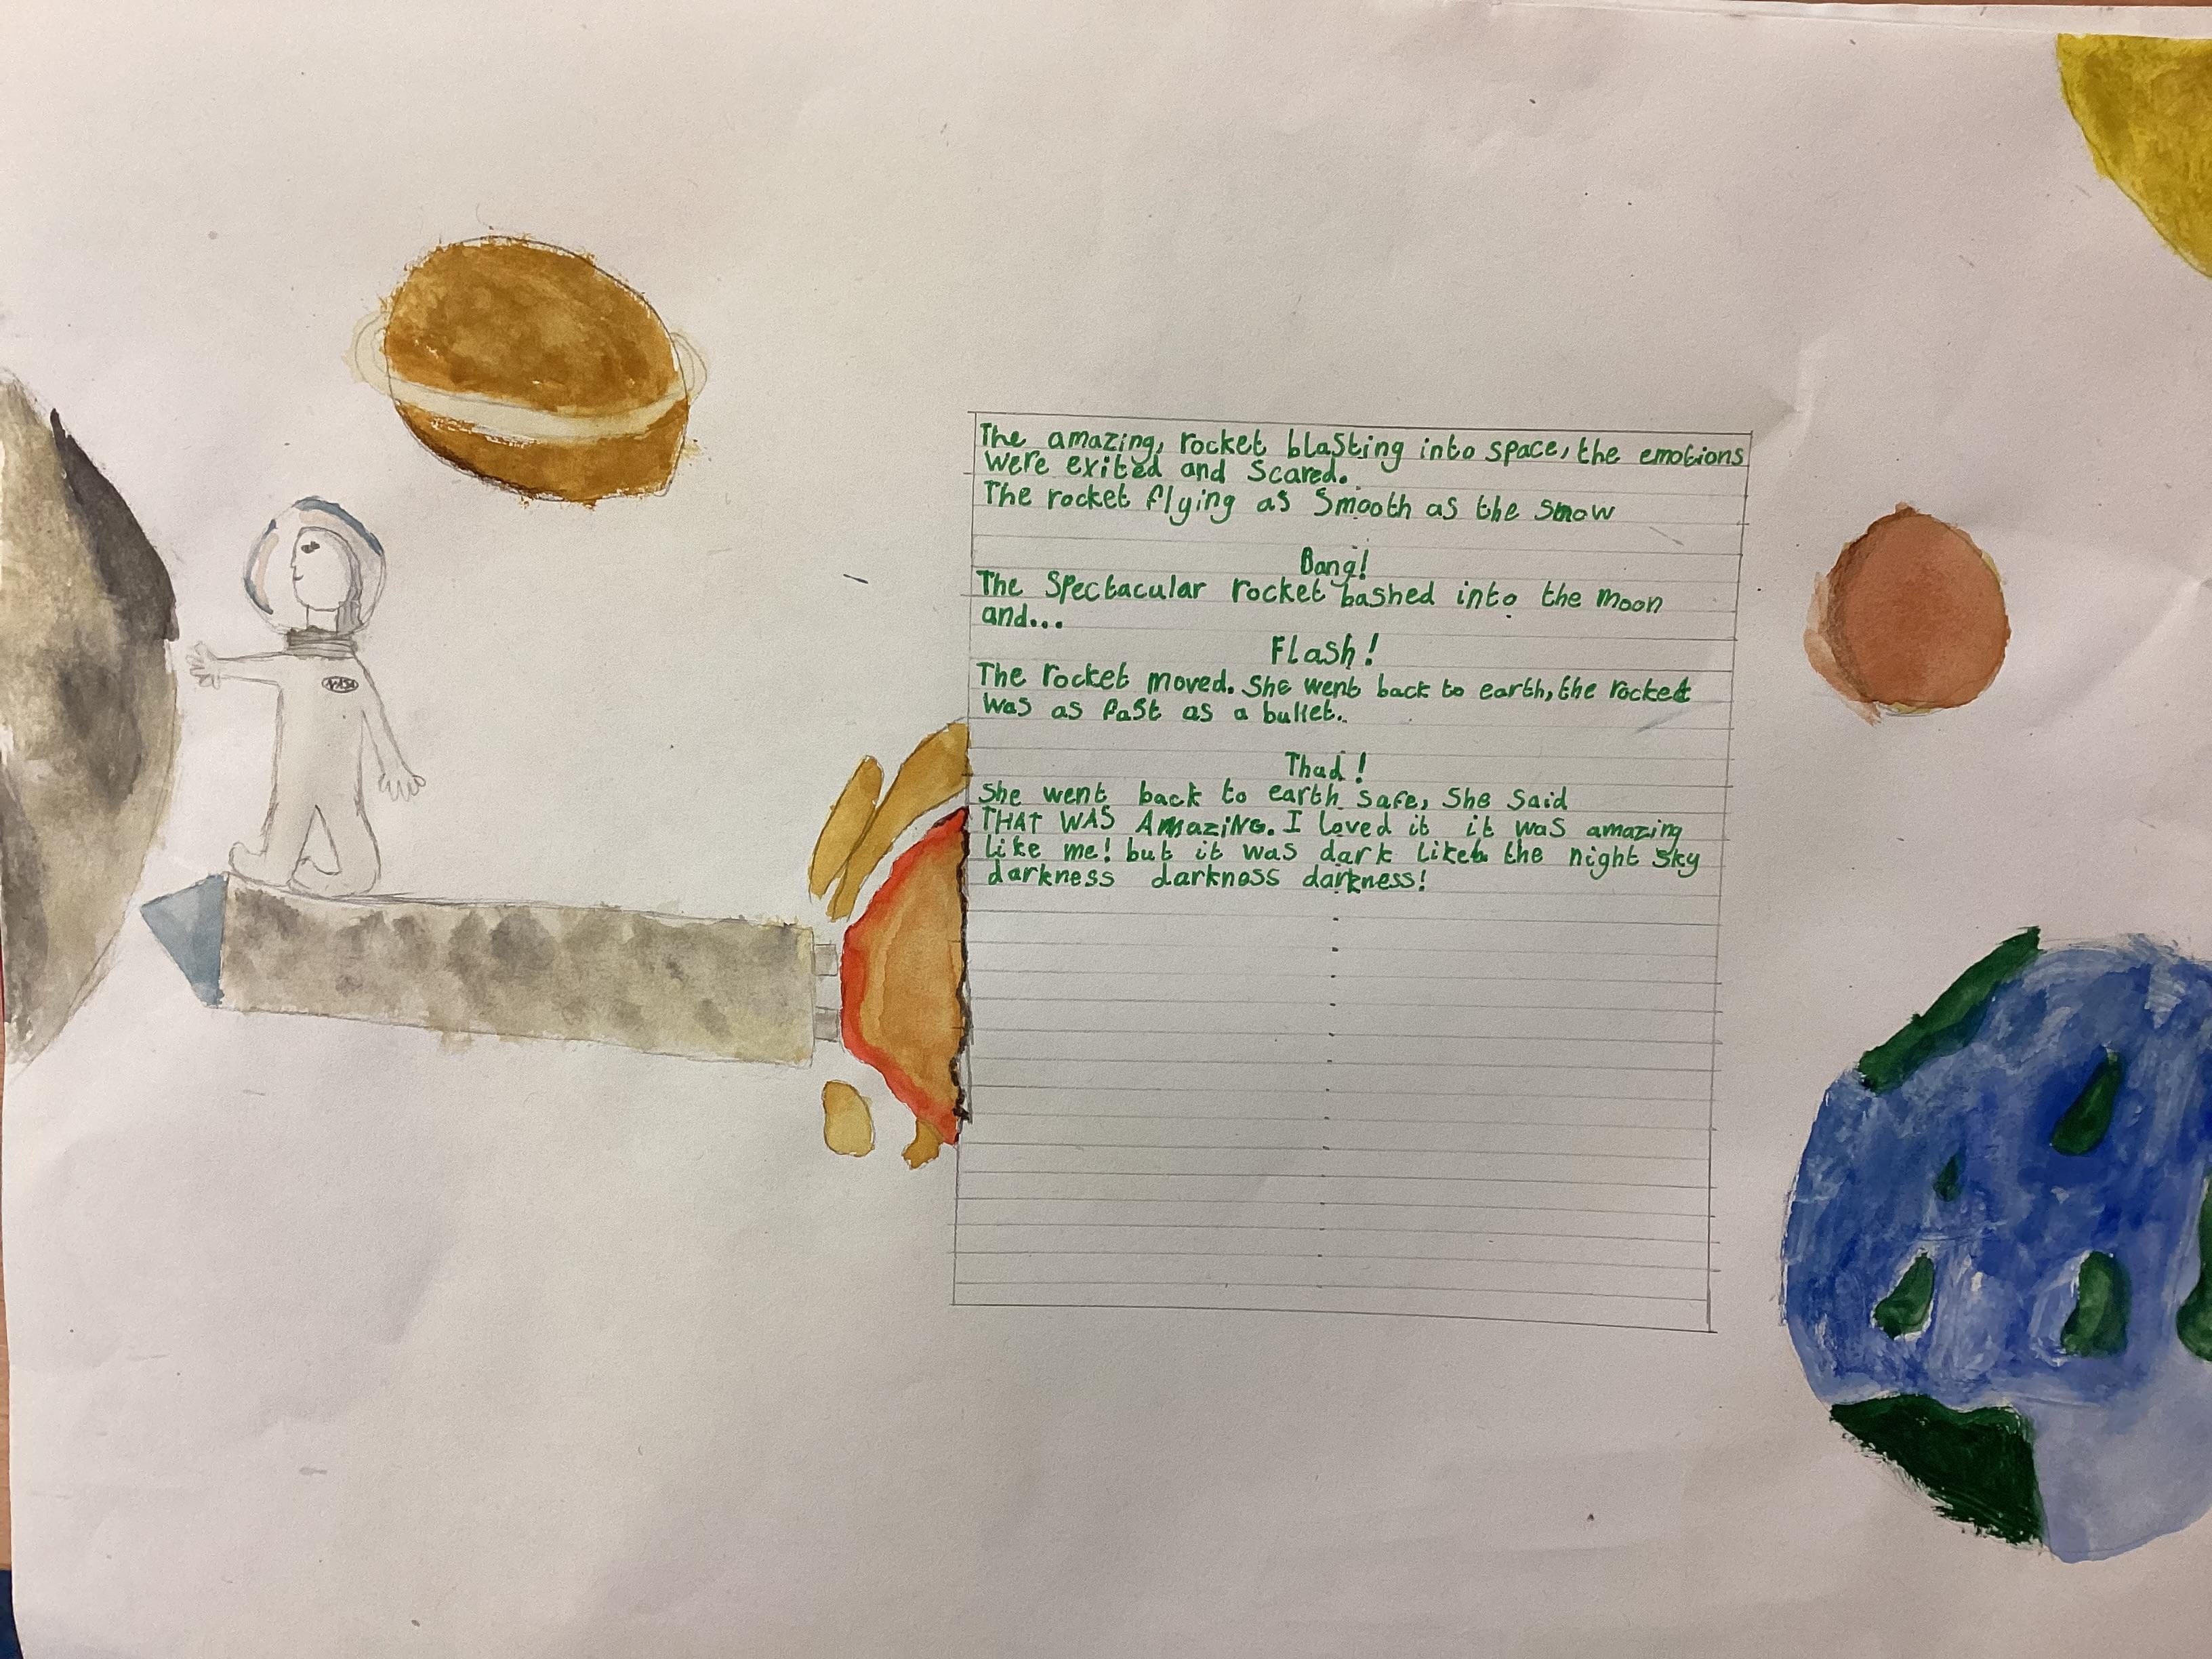 NASA
The amazing, rocket blasting into space, the emotions
were exited and scared.
The rocket flying as smooth as the snow
Bang!
The spectacular rocket bashed into the moon
and...
Flash!
The rocket moved. She went back to earth, the rocket
was as fast as a bullet.
Thud!
She went back to earth safe, She said
THAT WAS AmaziNG. I loved it it was amazing
like me! but it was dark like the night sky
darkness darkness darkness!